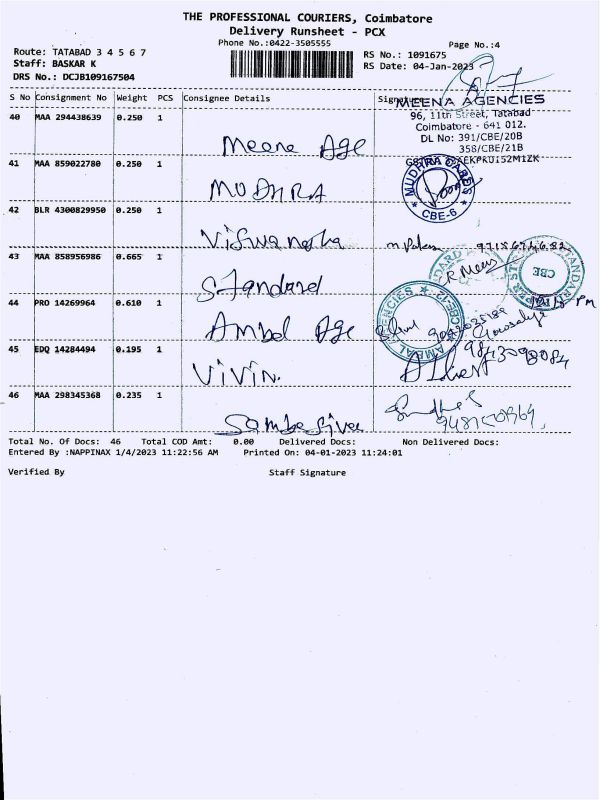 THE PROFESSIONAL COURIERS, Coimbatore
Delivery Runsheet - PCX
Phone No.:0422-3505555
Page No.:4
Route: TATABAD 3 4 5 6 7
RS No.: 1091675
Staff: BASKAR K
RS Date: 04-Jan-2023
DRS No.: DCJB109167504
S No Consignment No Weight PCS Consignee Details
MEENA AGENCIES
96, 11th Street, Tatabad
Coimbatore - 641 012.
DL No: 391/CBE/20B
358/CBE/21B
40 MAA 294438639 0.250 1 Meena Age
41 MAA 859022780 0.250 1 MUDHRA
MUDHRA CARDS
CBE-6
42 BLR 4300829950 0.250 1 Viswanatha
43 MAA 858956986 0.665 1 Standard
R Meens
CBE
44 PRO 14269964 0.610 1 Ambal Age
AMBAL AGENCIES
45 EDQ 14284494 0.195 1 Vivin.
46 MAA 298345368 0.235 1 Sambasivam
Total No. Of Docs: 46 Total COD Amt: 0.00 Delivered Docs: Non Delivered Docs:
Entered By :NAPPINAX 1/4/2023 11:22:56 AM Printed On: 04-01-2023 11:24:01
Verified By Staff Signature